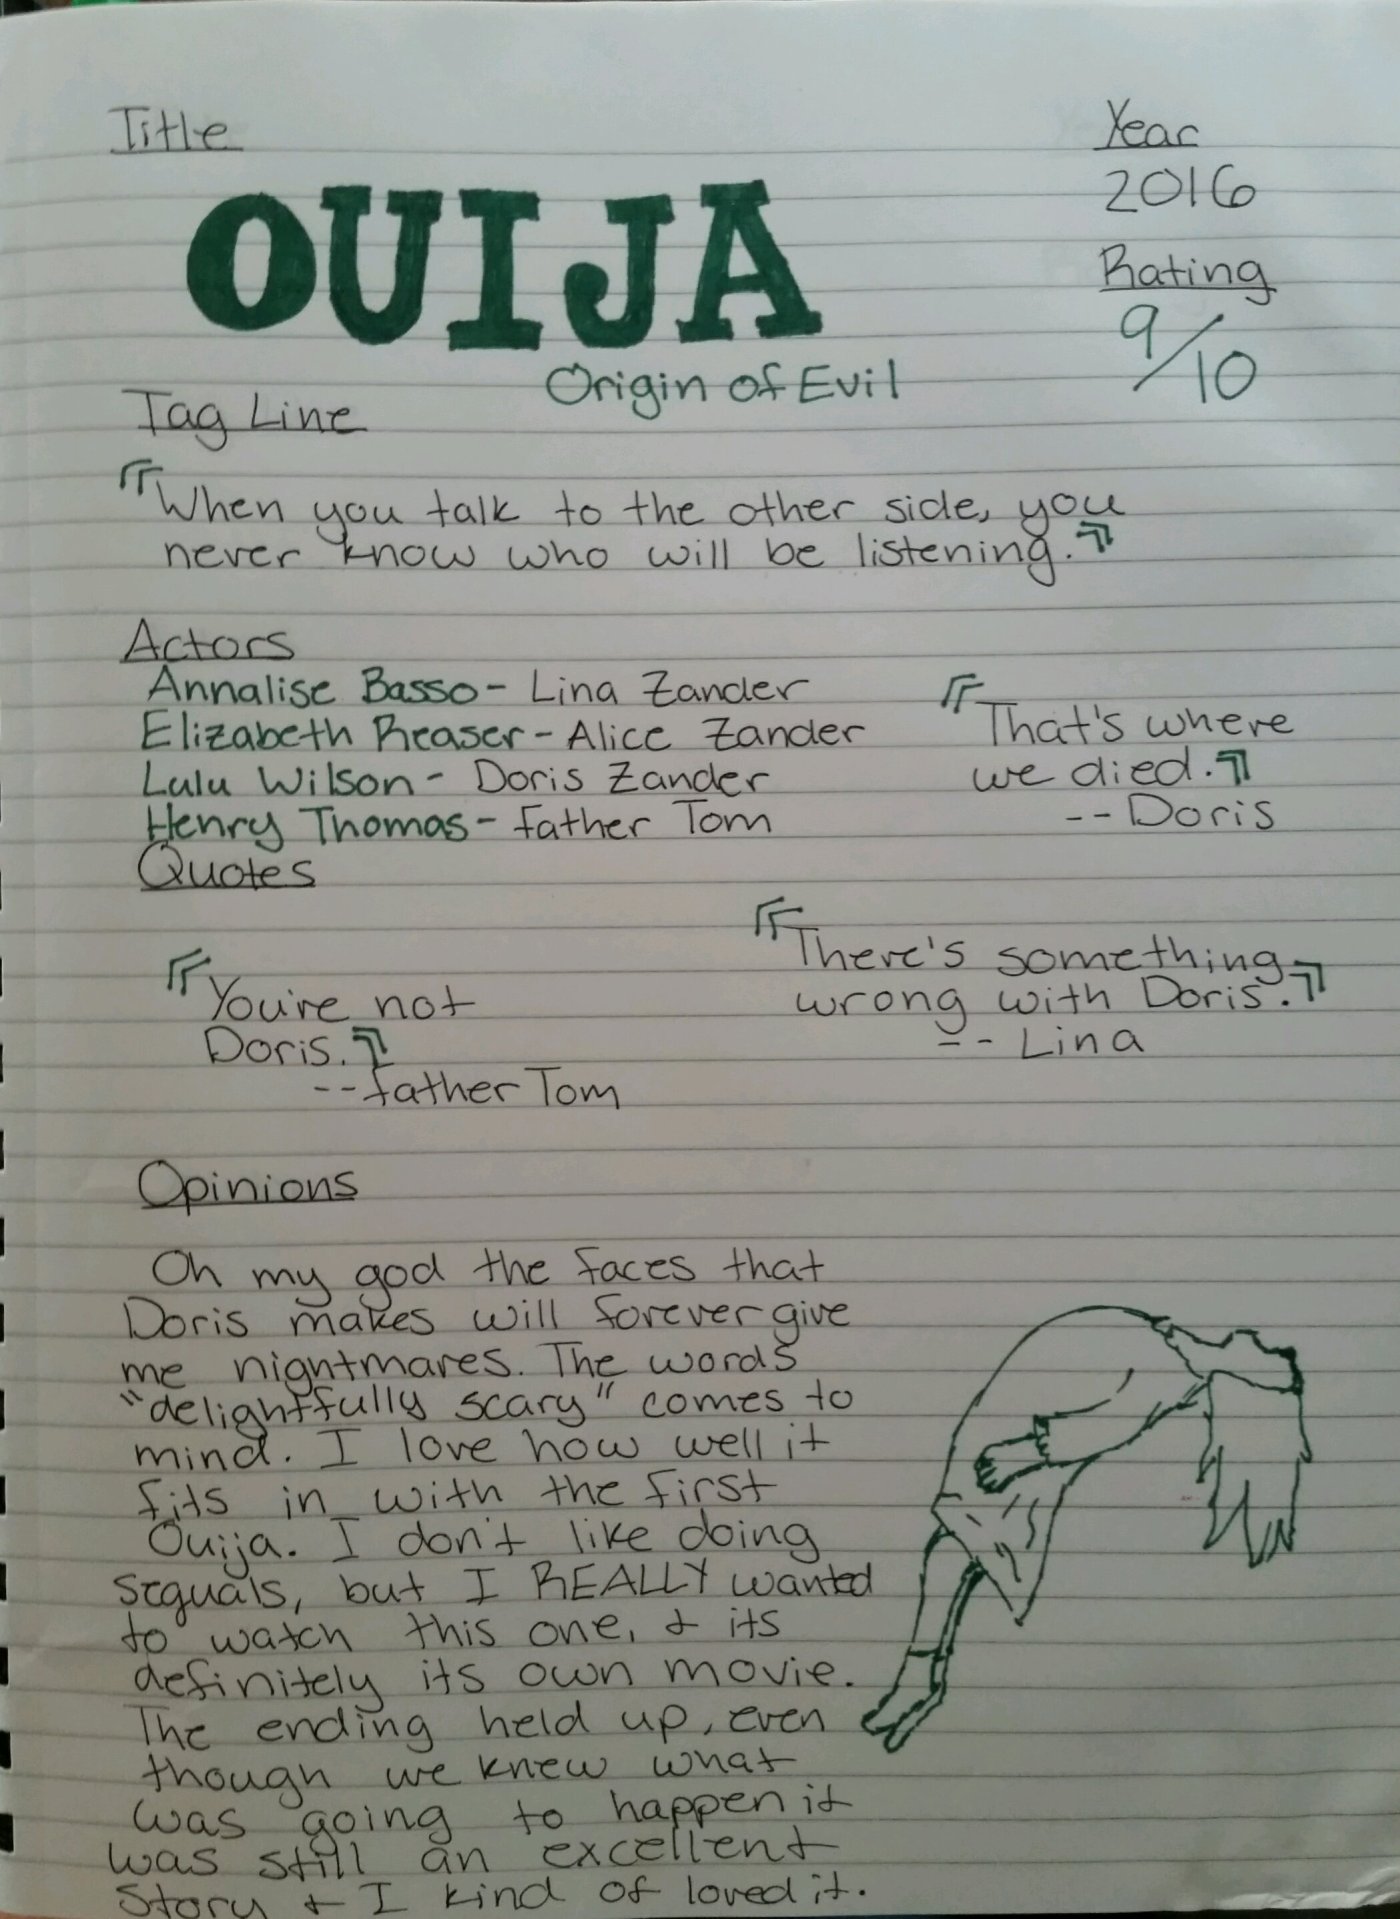 Title
Year
OUIJA
2016
Origin of Evil
Rating
9/10
Tag Line
"When you talk to the other side, you
never know who will be listening."
Actors
Annalise Basso- Lina Zander
Elizabeth Reaser- Alice Zander
Lulu Wilson- Doris Zander
Henry Thomas- Father Tom
"That's where
we died."
-- Doris
Quotes
"You're not
Doris."
--Father Tom
"There's something
wrong with Doris."
-- Lina
Opinions
Oh my god the faces that
Doris makes will forever give
me nightmares. The words
"delightfully scary" comes to
mind. I love how well it
fits in with the first
Ouija. I don't like doing
sequals, but I REALLY wanted
to watch this one, & its
definitely its own movie.
The ending held up, even
though we knew what
was going to happen it
was still an excellent
story & I kind of loved it.